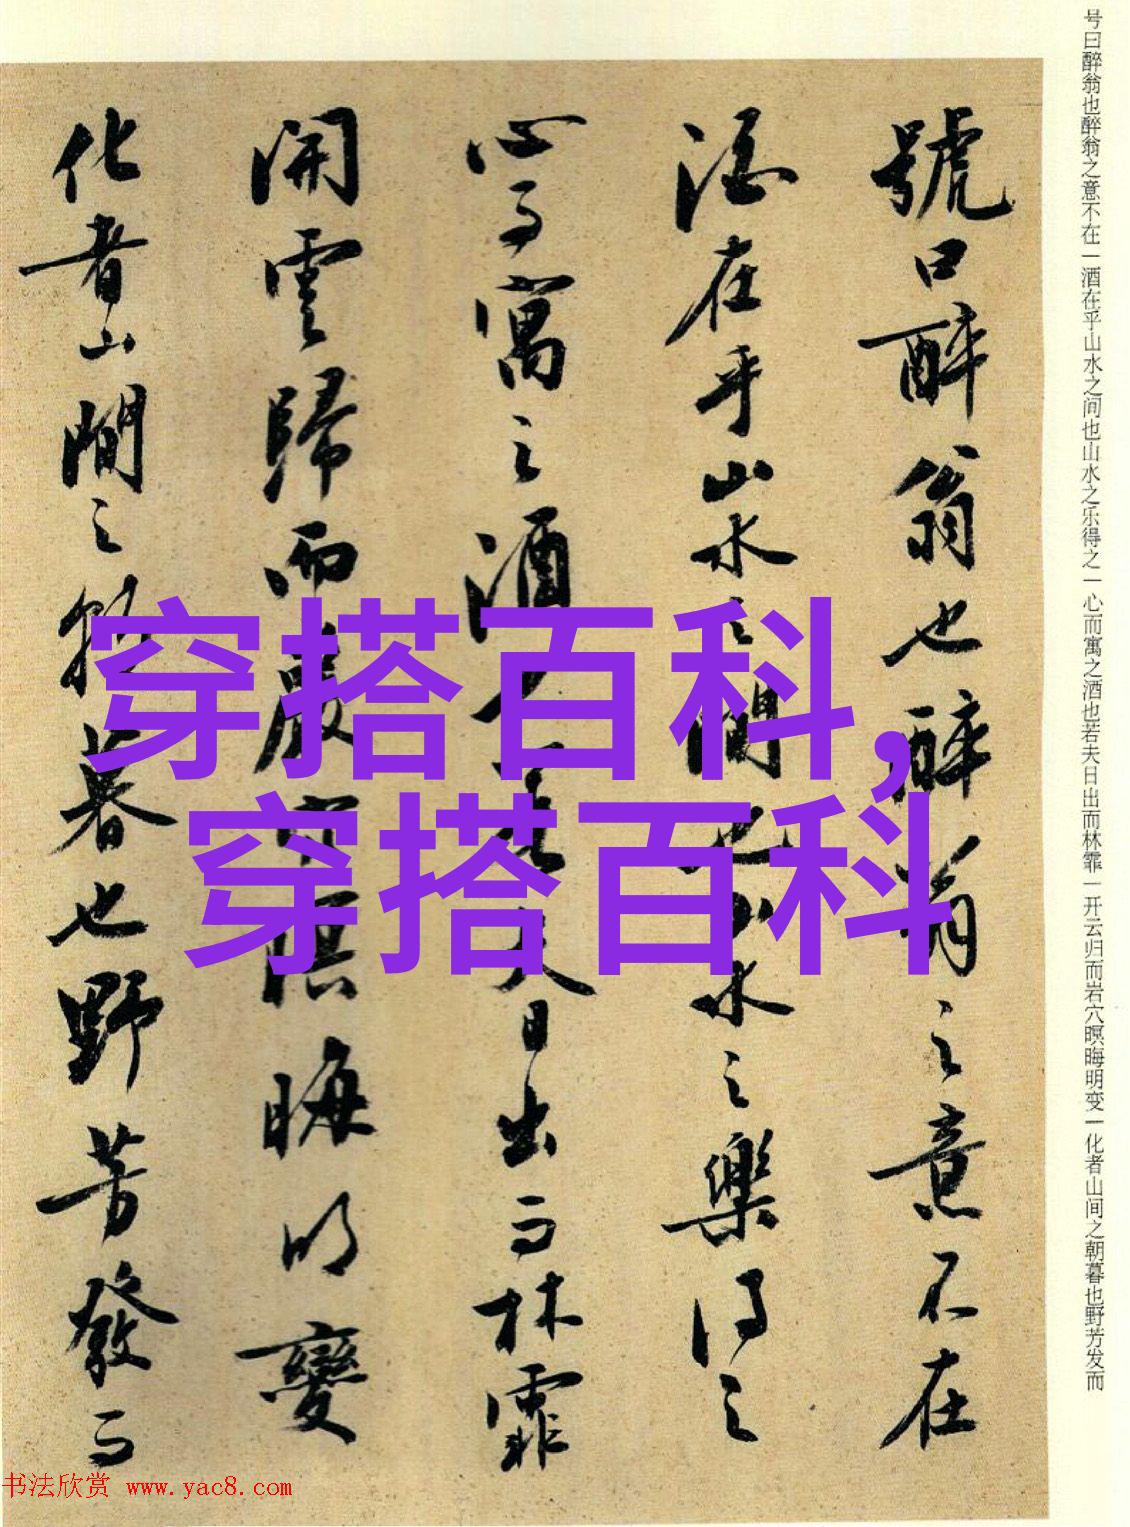 号曰醉翁也醉翁之意不在一酒在乎山水之间也山水之乐得之一心而寓之酒也若夫日出而林霏一开云归而岩穴暝晦明变一化者山间之朝暮也野芳发而
號曰醉翁也醉翁之意不在
酒在乎山水之間也山水之樂得之
心而寓之酒也若夫日出而林霏
開雲歸而巖穴暝晦明變
化者山間之朝暮也野芳發而
穿搭百科,
穿搭百科
书法欣赏 www.yac8.com